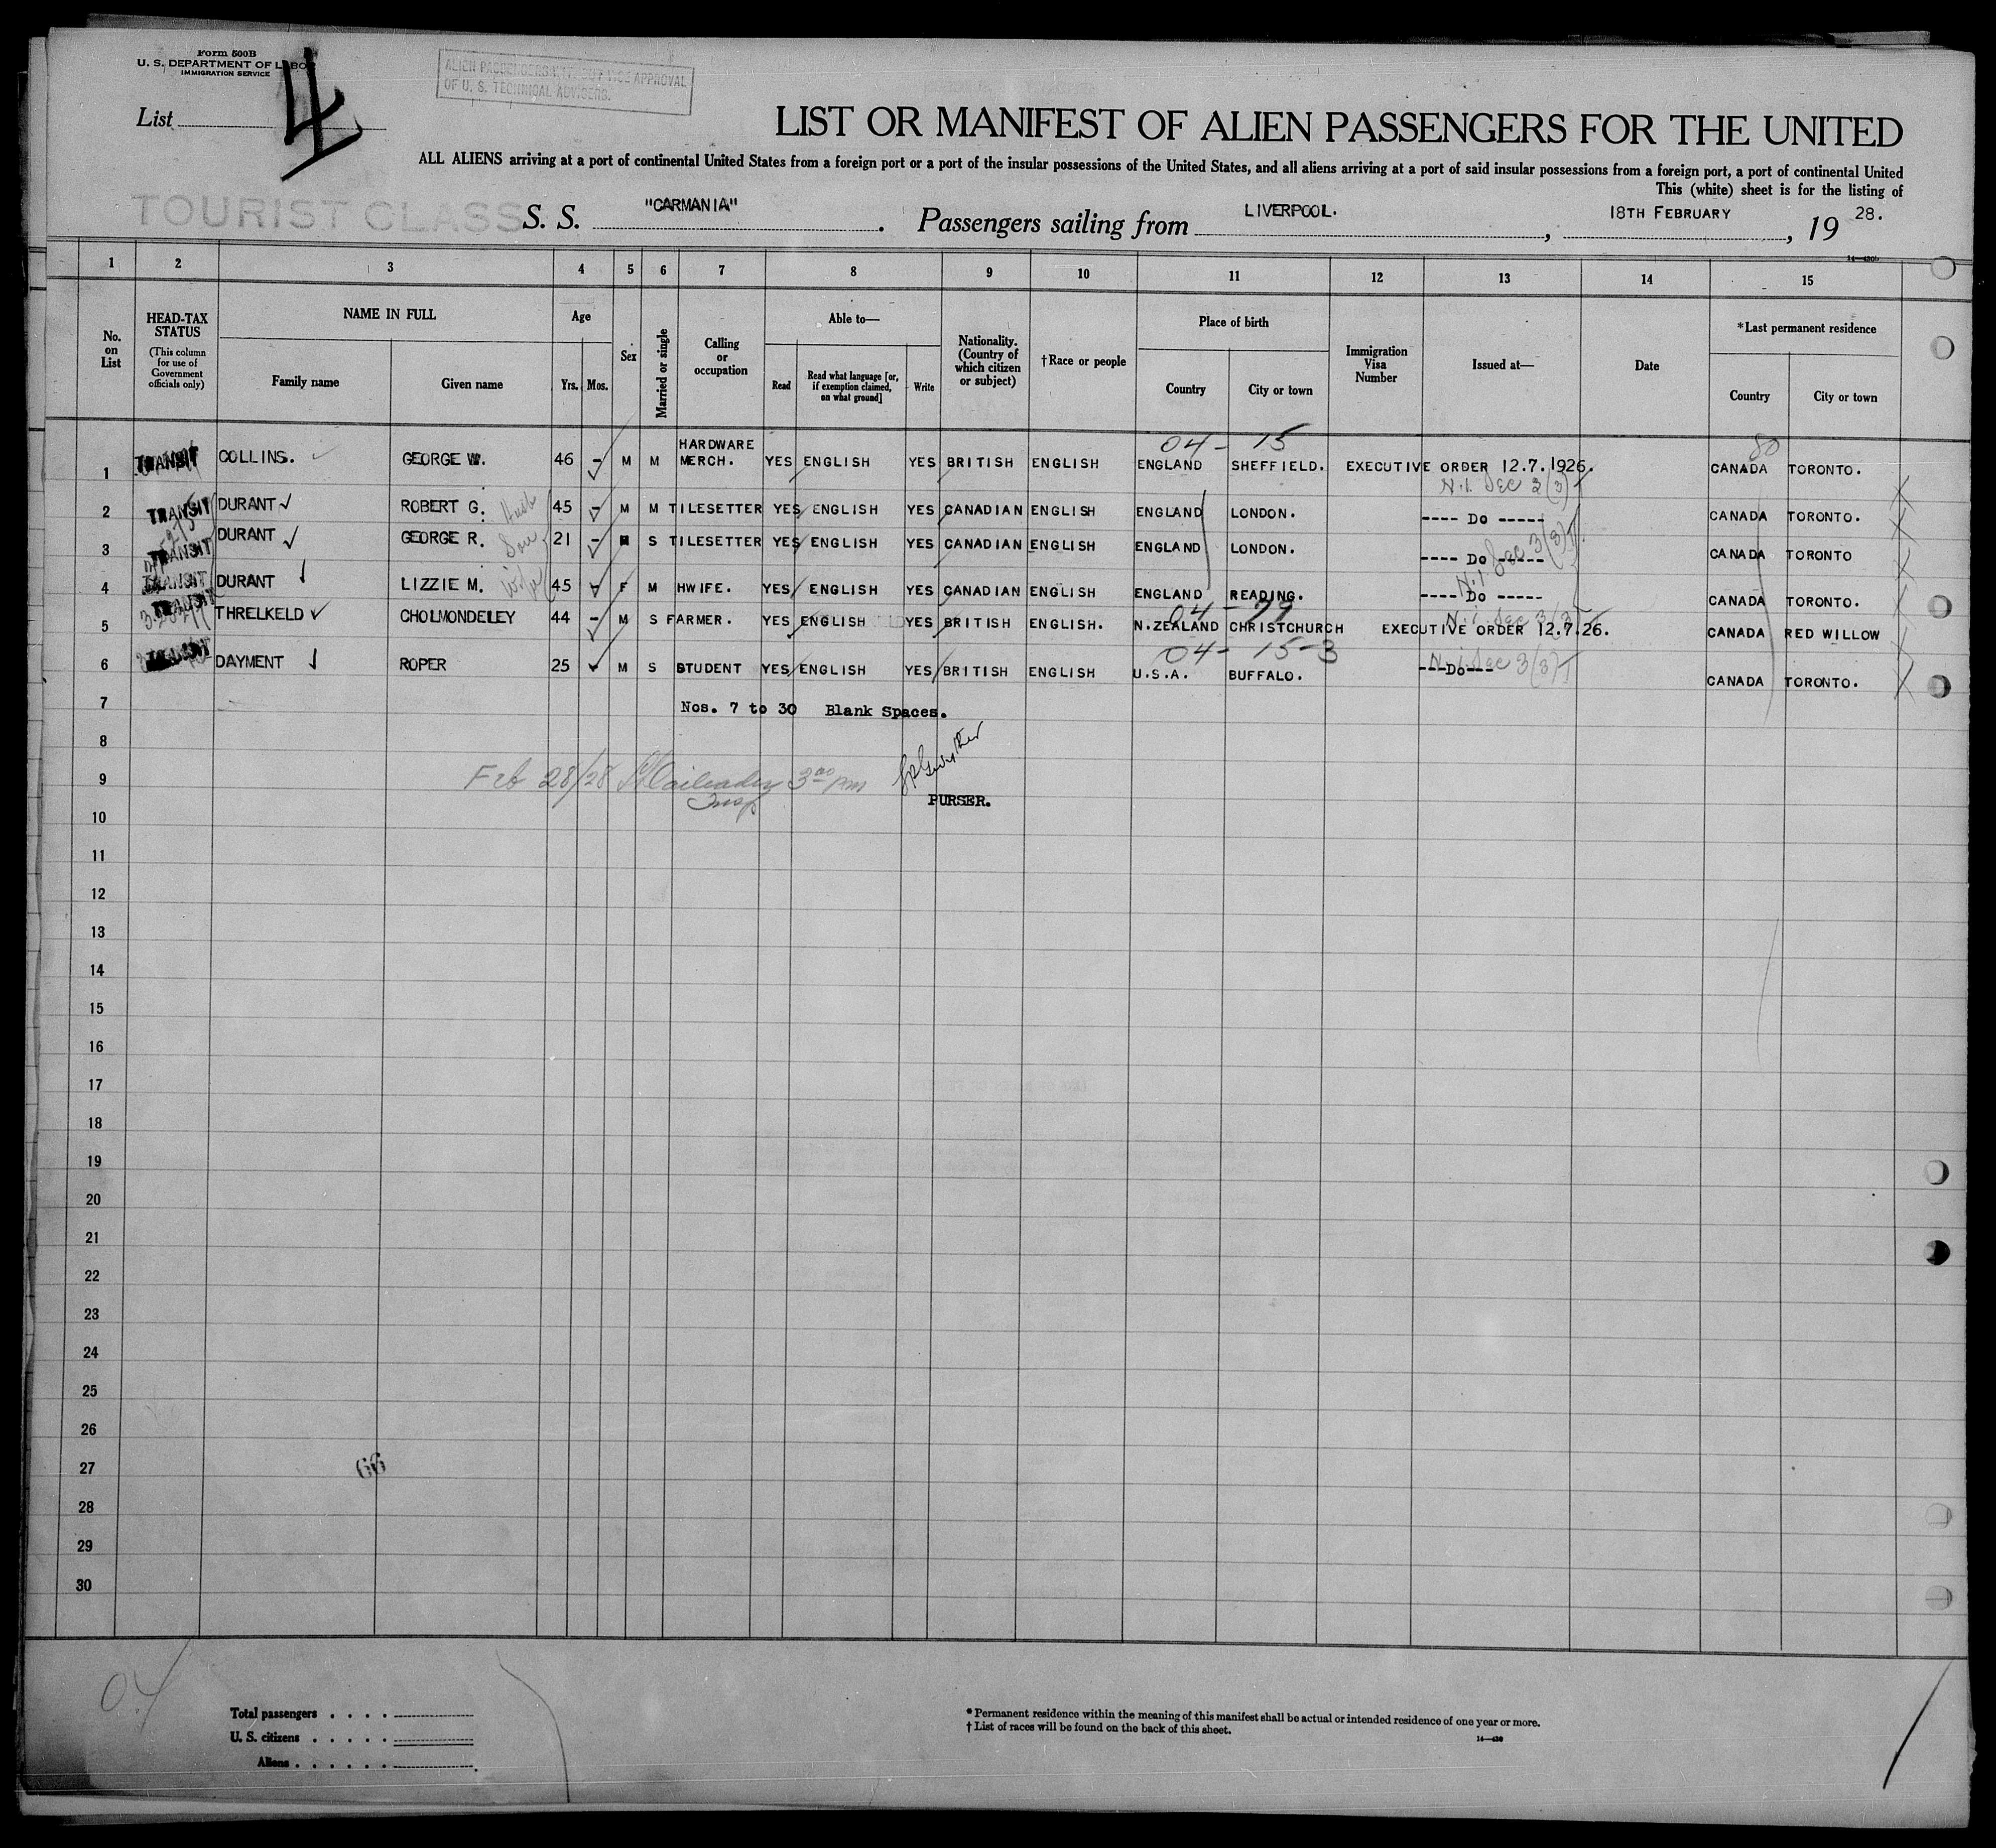 Form 500B
U. S. DEPARTMENT OF LABOR
IMMIGRATION SERVICE
ALIEN PASSENGERS WITHOUT VICE APPROVAL
OF U. S. TECHNICAL ADVISERS.
List 4
LIST OR MANIFEST OF ALIEN PASSENGERS FOR THE UNITED
ALL ALIENS arriving at a port of continental United States from a foreign port or a port of the insular possessions of the United States, and all aliens arriving at a port of said insular possessions from a foreign port, a port of continental United
This (white) sheet is for the listing of
TOURIST CLASS
S. S. "CARMANIA" . Passengers sailing from LIVERPOOL. , 18TH FEBRUARY , 19 28.
14—430b
1 2 3 4 5 6 7 8 9 10 11 12 13 14 15
No. on List
HEAD-TAX STATUS
(This column for use of Government officials only)
NAME IN FULL
Family name
Given name
Age
Yrs. Mos.
Sex
Married or single
Calling or occupation
Able to—
Read
Read what language [or, if exemption claimed, on what ground]
Write
Nationality. (Country of which citizen or subject)
†Race or people
Place of birth
Country
City or town
Immigration Visa Number
Issued at—
Date
*Last permanent residence
Country
City or town
04 - 15
80
1 TRANSIT COLLINS. GEORGE W. 46 - M M HARDWARE MERCH. YES ENGLISH YES BRITISH ENGLISH ENGLAND SHEFFIELD. EXECUTIVE ORDER 12.7.1926. CANADA TORONTO.
N.I. Sec 3 (3) T
2 TRANSIT DURANT ROBERT G. Husb 45 - M M TILESETTER YES ENGLISH YES CANADIAN ENGLISH ENGLAND LONDON. ---- Do ----- CANADA TORONTO.
3 TRANSIT DURANT GEORGE R. Son 21 - M S TILESETTER YES ENGLISH YES CANADIAN ENGLISH ENGLAND LONDON. ---- Do ----- CANADA TORONTO
N.I. Sec 3 (3) T
4 TRANSIT DURANT LIZZIE M. Wife 45 - F M HWIFE. YES ENGLISH YES CANADIAN ENGLISH ENGLAND READING. ---- Do ----- CANADA TORONTO.
04 - 79
N.I. Sec 3 (3) T
5 TRANSIT THRELKELD CHOLMONDELEY 44 - M S FARMER. YES ENGLISH YES BRITISH ENGLISH. N.ZEALAND CHRISTCHURCH EXECUTIVE ORDER 12.7.26. CANADA RED WILLOW
04 - 15-3
N.I. Sec 3 (3) T
6 TRANSIT DAYMENT ROPER 25 - M S STUDENT YES ENGLISH YES BRITISH ENGLISH U.S.A. BUFFALO. ----Do---- CANADA TORONTO.
7 Nos. 7 to 30 Blank Spaces.
8
9 Feb 28/28 3 00 pm
Insp
PURSER.
10
11
12
13
14
15
16
17
18
19
20
21
22
23
24
25
26
27 66
28
29
30
04
Total passengers . . . .
U. S. citizens . . . . .
Aliens . . . . . .
* Permanent residence within the meaning of this manifest shall be actual or intended residence of one year or more.
† List of races will be found on the back of this sheet.
14—430